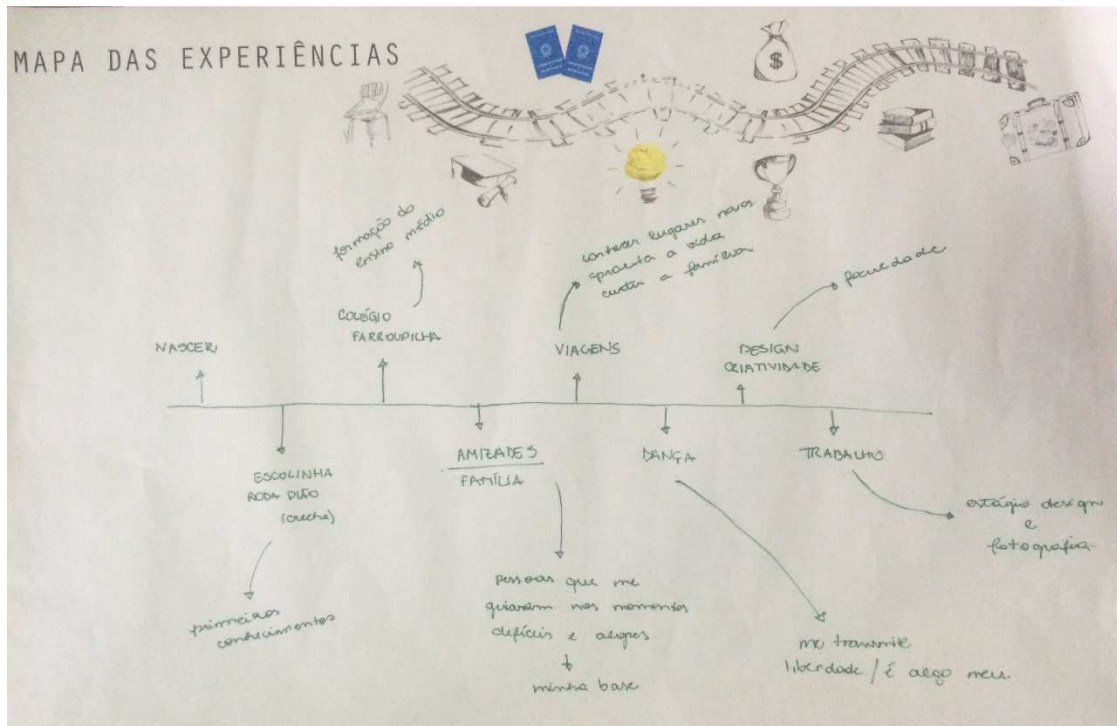 MAPA DAS EXPERIÊNCIAS
$
formação do
ensino médio
conhecer lugares novos
aproveita a vida
curtir a família
faculdade
COLÉGIO
FARROUPILHA
NASCER
VIAGENS
DESIGN
CRIATIVIDADE
ESCOLINHA
RODA PIÃO
(creche)
AMIZADES
FAMÍLIA
DANÇA
TRABALHO
estágio design
e
fotografia
primeiros
conhecimentos
pessoas que me
guiaram nos momentos
defíceis e alegres
minha base
me transmite
liberdade / é algo meu